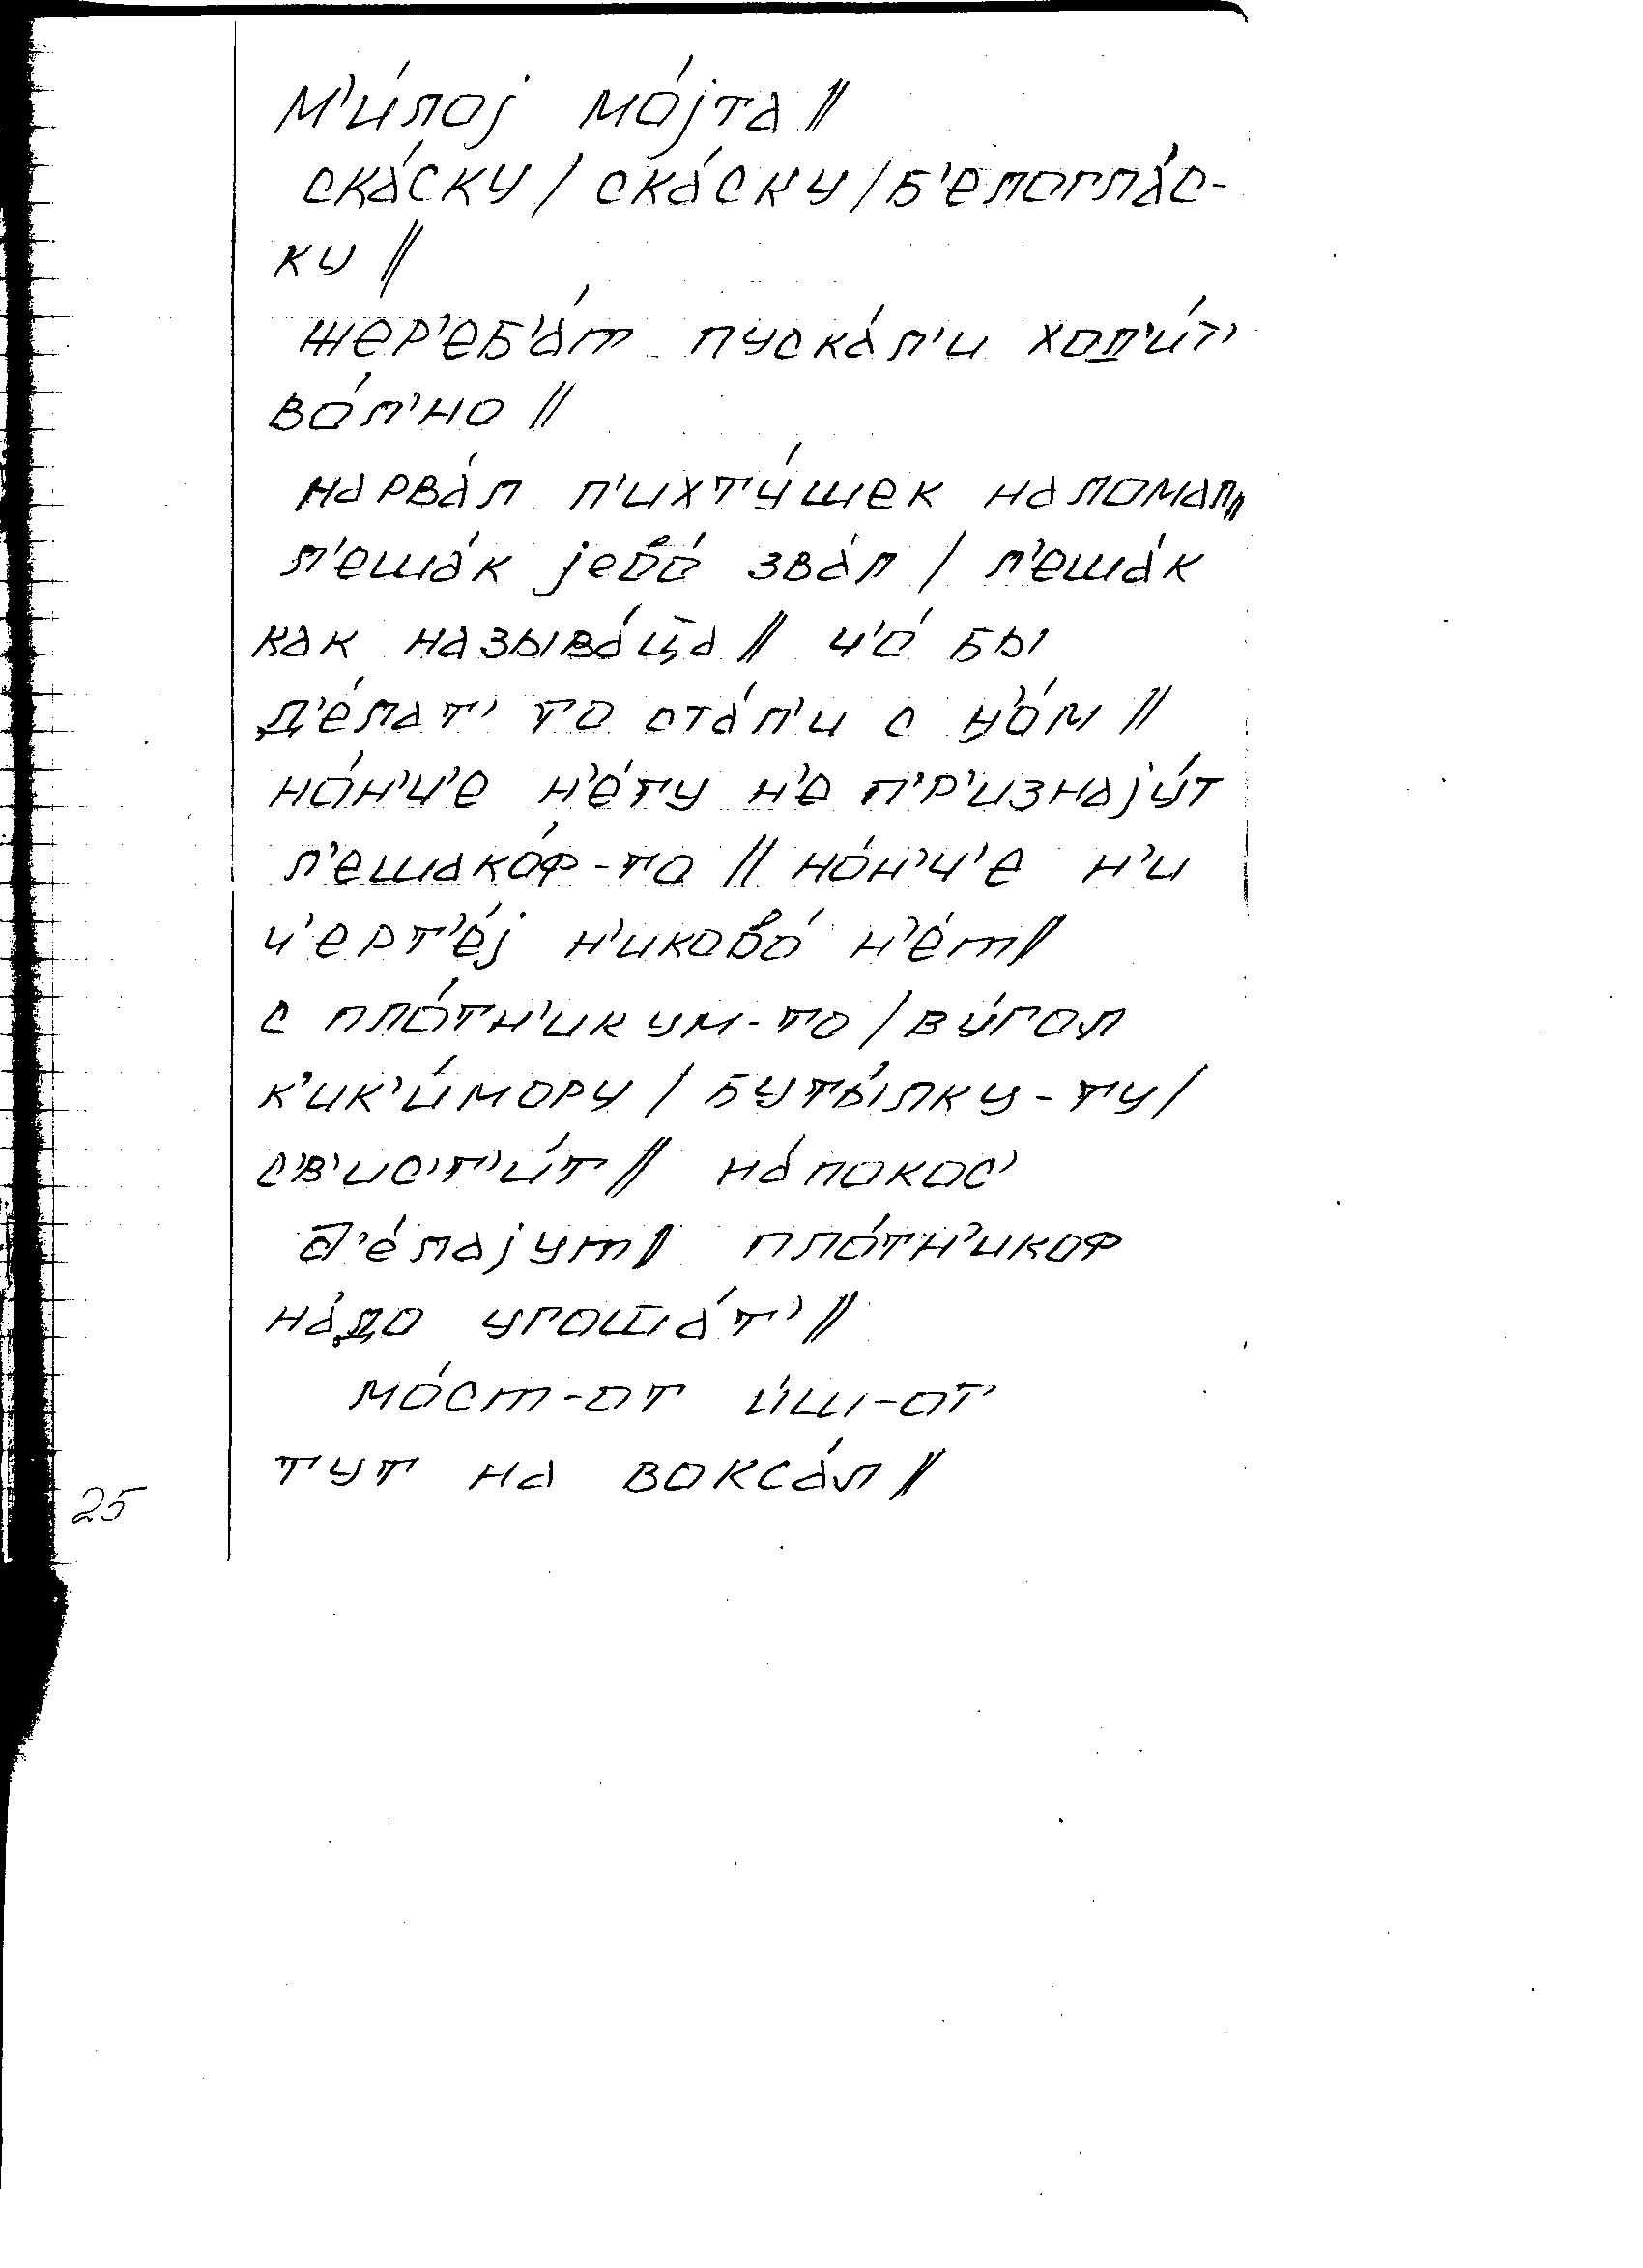 м'и́лој мо́јта //
ска́ску / ска́ску / б'елогла́с-
ку //
жер'еб'а́т пуска́л'и ход'и́т'
во́л'но //
нарва́л п'ихту́шек наломал //
л'еша́к јево́ зва́л / л'еша́к
как называ́ц̄а // ч'о́ бы
д'е́лат' то ста́л'и с н'о́м //
но́н'ч'е н'е́ту н'е п'р'изнају́т
л'ешако́ф-то // но́н'ч'е н'и
ч'ерт'е́ј н'иково́ н'е́т //
с пло́тн'икум-то / ву́гол
к'ик'и́мору / буты́лку-ту /
с'в'ис'т'и́т // на́покос'
д'е́лајут // пло́тн'икоф
на́до угош̄а́т' //
мо́ст-от и́ш-от
тут на вокса́л //
25